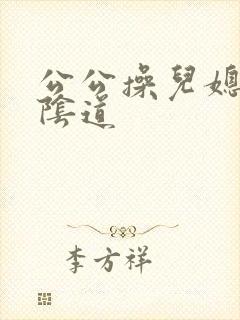 公公操兒媳
陰道
李方祥